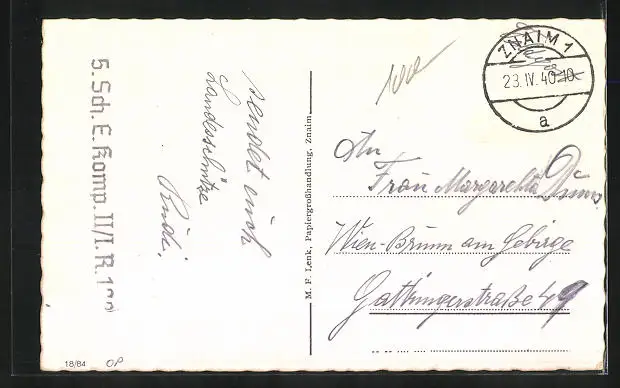 5. Sch. E. Komp. II/I. R. 100
sendet euch
Landesschütze
Rudi.
M. F. Lenk, Papiergroßhandlung, Znaim
ZNAIM 1
23. IV. 40. 10
a
An
Frau Margaretha
Wien-Brunn am Gebirge
Gattringerstraße 49
18/84
OP